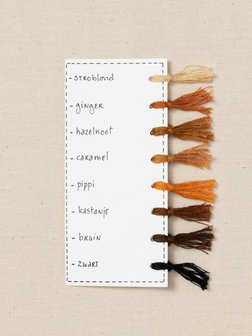 - STROblond
- ginger
- hazelnoot
- caramel
- pippi
- kastanje
- bruin
- ZWART